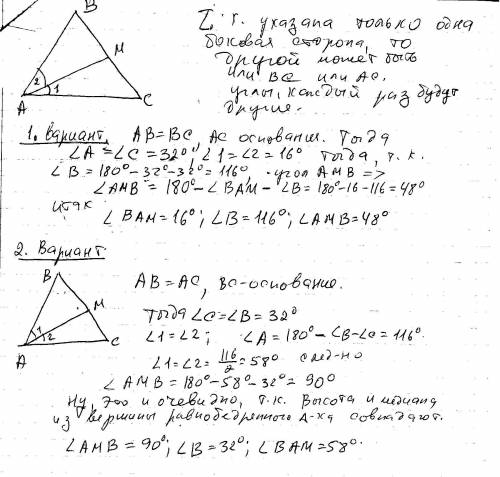 B
M
2
1
A
C
Т.к. указана только одна
боковая сторона, то
другой может быть
или BC или AC.
углы, каждый раз будут
другие.
1. Вариант. AB=BC, AC основание. Тогда
∠A = ∠C = 32°, ∠1=∠2=16° Тогда, т.к.
∠B = 180°-32°-32°=116°, угол AMB =>
∠AMB = 180°-∠BAM-∠B=180°-16-116=48°
итак
∠BAM=16°; ∠B=116°; ∠AMB=48°
2. Вариант
B
M
1
2
A
C
AB=AC, BC-основание.
Тогда ∠C=∠B=32°
∠1=∠2; ∠A=180°-∠B-∠C=116°.
∠1=∠2=116/2=58° след-но
∠AMB=180°-58°-32°=90°
Ну, это и очевидно, т.к. высота и медиана
из вершины равнобедренного Δ-ка совпадают.
∠AMB=90°; ∠B=32°; ∠BAM=58°.